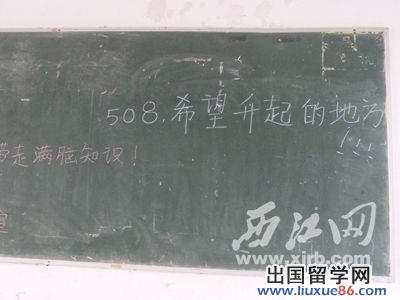 508,希望升起的地方
!!!
带走满脑知识!
西江网
www.xjrb.com
出国留学网
www.liuxue86.com